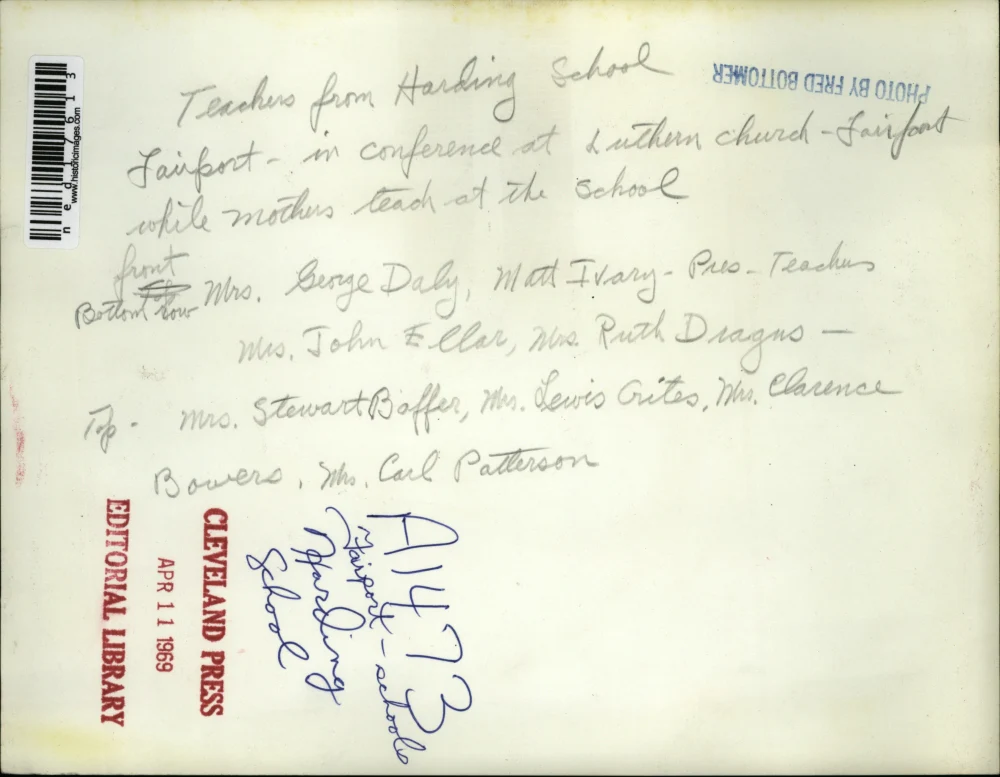 Teachers from Harding School
Fairport - in conference at Luthern church - Fairport
while mothers teach at the school
front
Bottom row Mrs. George Daly, Matt Ivary - Pres - Teachers
Mrs. John Ellar, Mrs. Ruth Dragus -
Top - Mrs. Stewart Boffer, Mrs. Lewis Crites, Mrs. Clarence
Bowers, Mrs. Carl Patterson
PHOTO BY FRED BOTTOMER
ned17613
www.historicimages.com
CLEVELAND PRESS
APR 11 1969
EDITORIAL LIBRARY
A1473
Fairport - schools
Harding
School